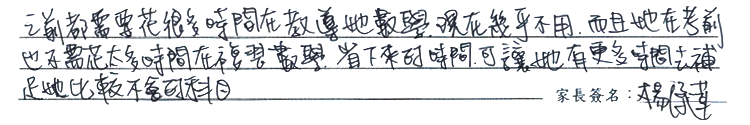 之前都需要花很多時間在教導她數學.現在幾乎不用.而且她在考前
也不需花太多時間在複習數學.省下來的時間.可讓她有更多時間去補
足她比較不會的科目
家長簽名：楊